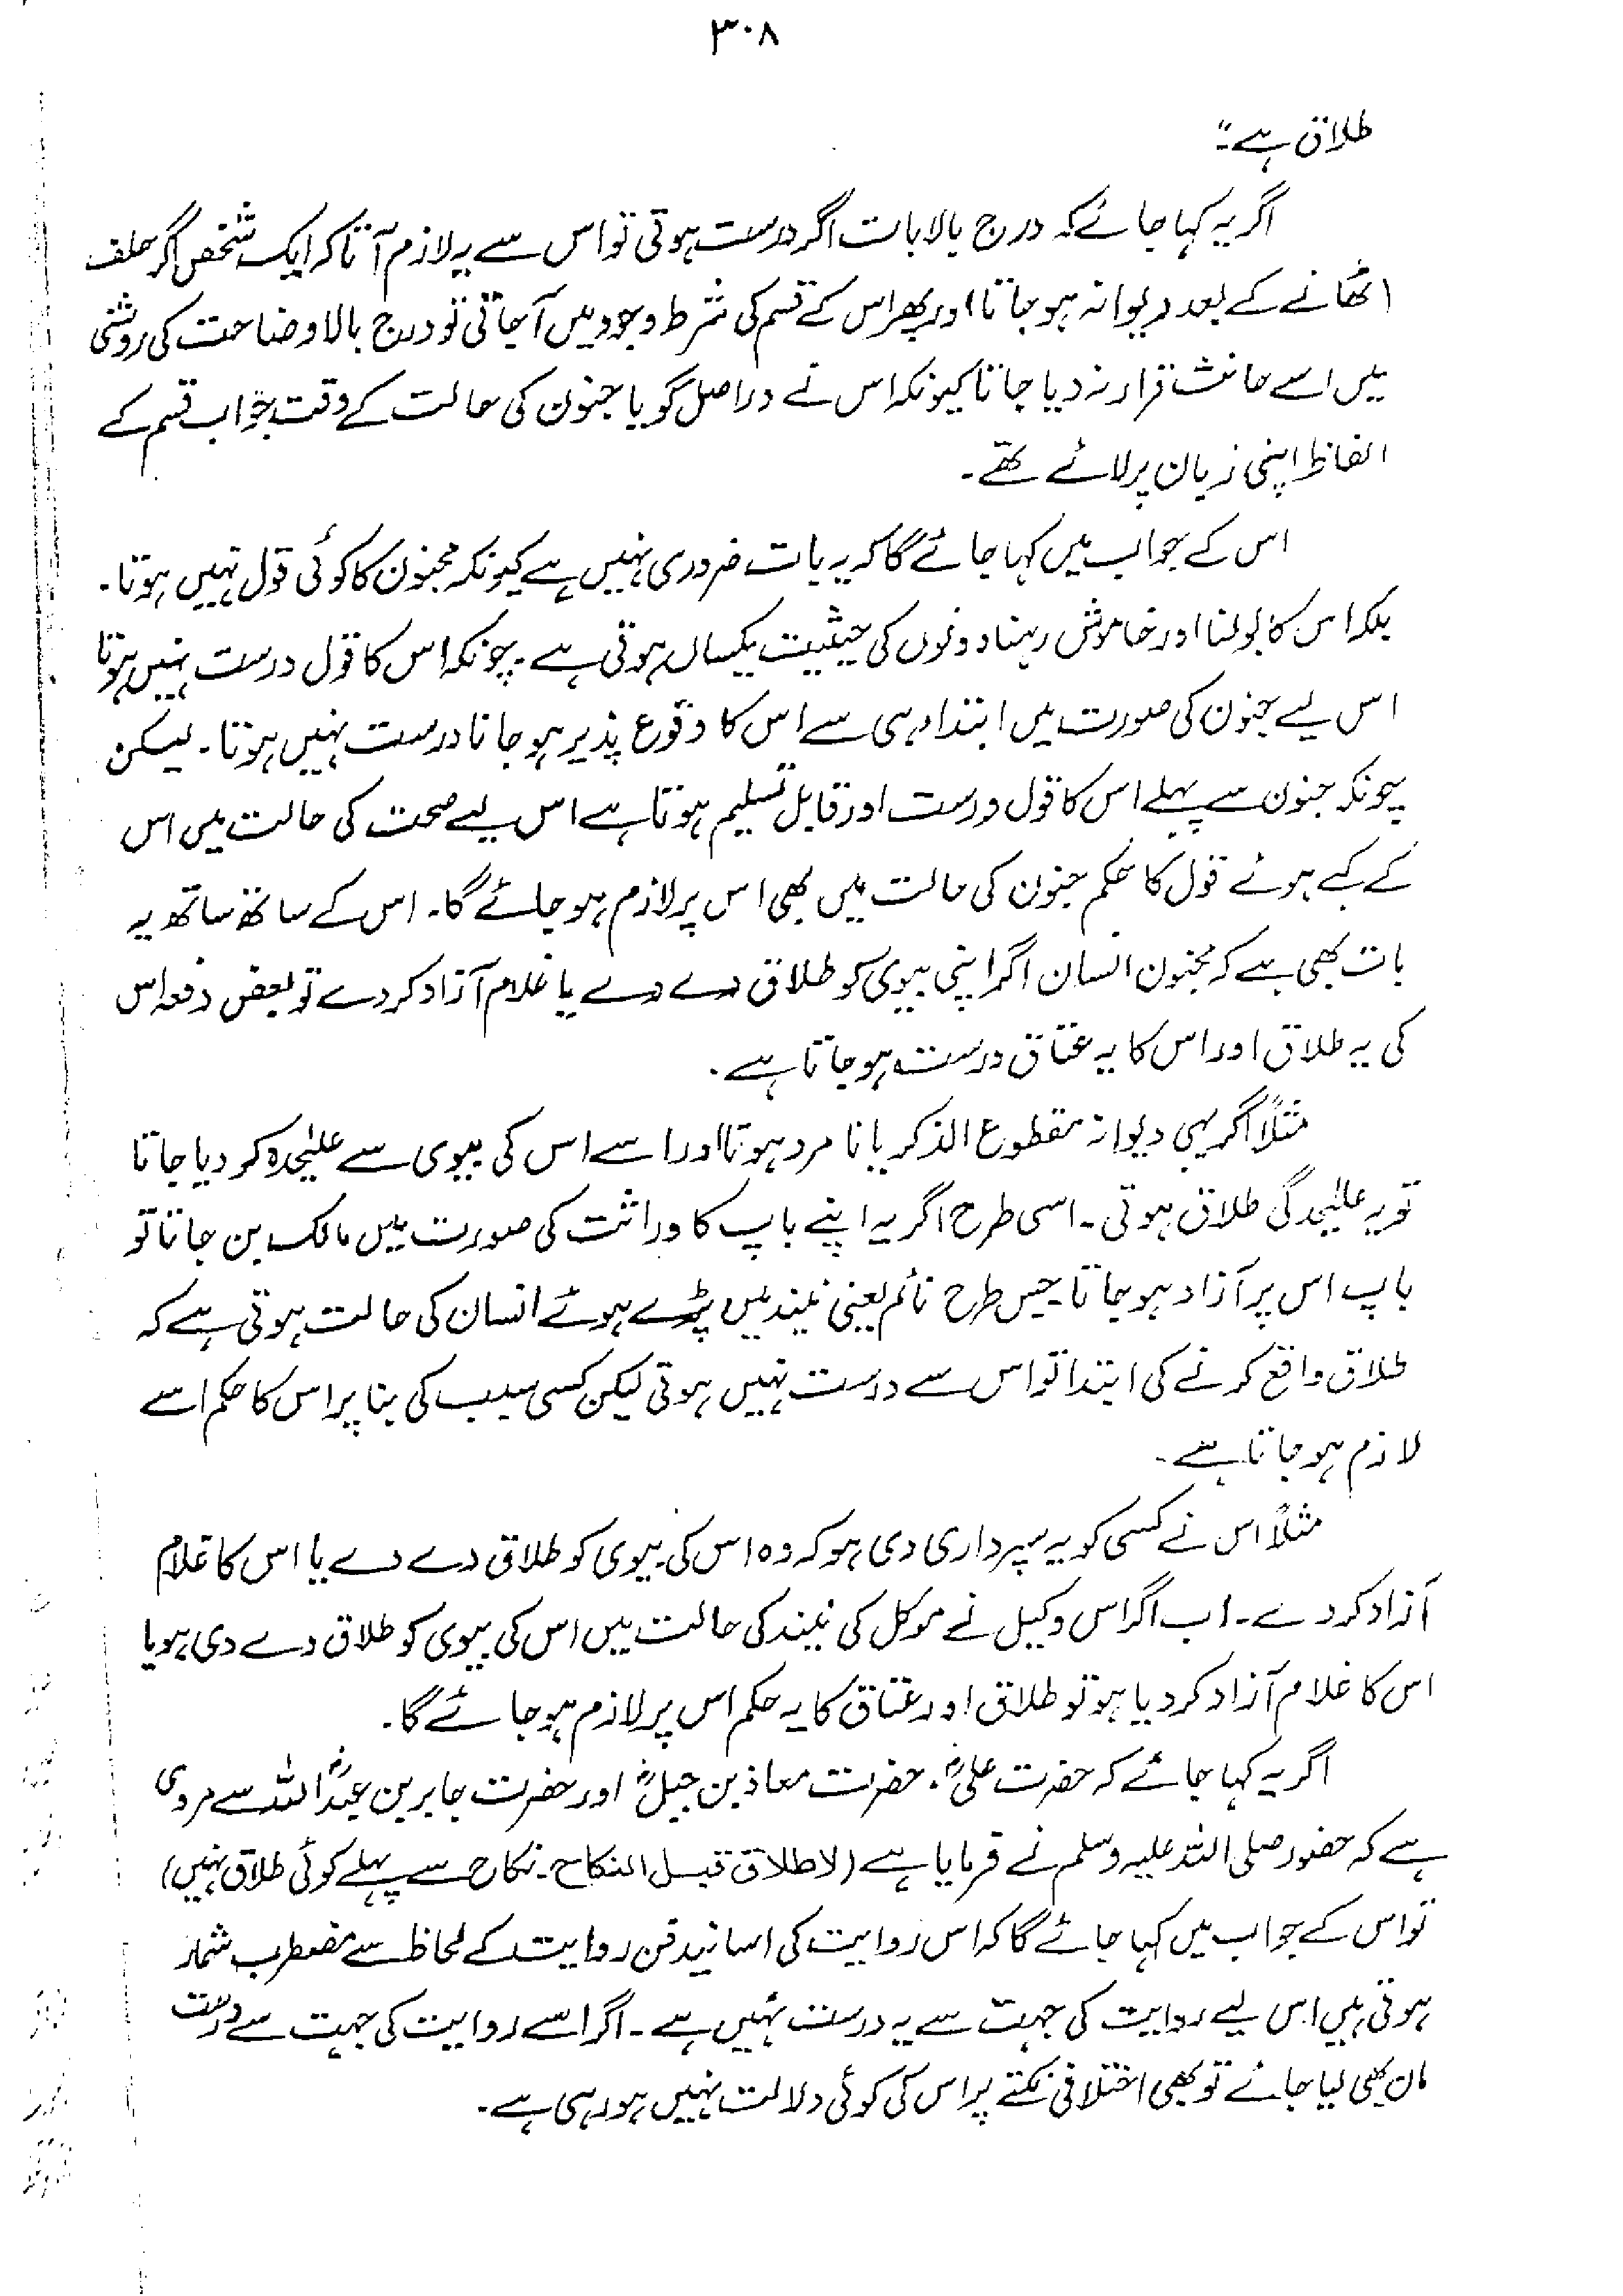 ۳۰۸
طلاق ہے"۔
اگر یہ کہا جائے کہ درج بالا بات اگر درست ہوتی تو اس سے یہ لازم آتا کہ ایک شخص اگر حلف
اٹھانے کے بعد دیوانہ ہو جاتا اور پھر اس کے قسم کی شرط وجود میں آجاتی تو درج بالا وضاحت کی روشنی
میں اسے حانث قرار نہ دیا جاتا کیونکہ اس نے دراصل گویا جنون کی حالت کے وقت جواب قسم کے
الفاظ اپنی زبان پر لائے تھے۔
اس کے جواب میں کہا جائے گا کہ یہ بات ضروری نہیں ہے کیونکہ مجنون کا کوئی قول نہیں ہوتا۔
بلکہ اس کا بولنا اور خاموش رہنا دونوں کی حیثیت یکساں ہوتی ہے۔ چونکہ اس کا قول درست نہیں ہوتا
اس لیے جنون کی صورت میں ابتداء ہی سے اس کا وقوع پذیر ہو جانا درست نہیں ہوتا۔ لیکن
چونکہ جنون سے پہلے اس کا قول درست اور قابل تسلیم ہوتا ہے اس لیے صحت کی حالت میں اس
کے کہے ہوئے قول کا حکم جنون کی حالت میں بھی اس پر لازم ہو جائے گا۔ اس کے ساتھ ساتھ یہ
بات بھی ہے کہ مجنون انسان اگر اپنی بیوی کو طلاق دے دے یا غلام آزاد کر دے تو بعض دفعہ اس
کی یہ طلاق اور اس کا یہ عتاق درست ہو جاتا ہے۔
مثلاً اگر یہی دیوانہ مقطوع الذکر یا نا مرد ہوتا اور اسے اس کی بیوی سے علیٰحدہ کر دیا جاتا
تو یہ علیٰحدگی طلاق ہوتی۔ اسی طرح اگر یہ اپنے باپ کا وراثت کی صورت میں مالک بن جاتا تو
باپ اس پر آزاد ہو جاتا۔ جس طرح نائم یعنی نیند میں پڑے ہوئے انسان کی حالت ہوتی ہے کہ
طلاق واقع کرنے کی ابتدا تو اس سے درست نہیں ہوتی لیکن کسی سبب کی بنا پر اس کا حکم اسے
لازم ہو جاتا ہے۔
مثلاً اس نے کسی کو یہ سپرداری دی ہو کہ وہ اس کی بیوی کو طلاق دے دے یا اس کا غلام
آزاد کر دے۔ اب اگر اس وکیل نے موکل کی نیند کی حالت میں اس کی بیوی کو طلاق دے دی ہو یا
اس کا غلام آزاد کر دیا ہو تو طلاق اور عتاق کا یہ حکم اس پر لازم ہو جائے گا۔
اگر یہ کہا جائے کہ حضرت علیؓ، حضرت معاذ بن جبلؓ اور حضرت جابر بن عبداللہؓ سے مروی
ہے کہ حضور صلی اللہ علیہ وسلم نے فرمایا ہے (لا طلاق قبل النکاح۔ نکاح سے پہلے کوئی طلاق نہیں)
تو اس کے جواب میں کہا جائے گا کہ اس روایت کی اسانید فن روایت کے لحاظ سے مضطرب شمار
ہوتی ہیں اس لیے روایت کی جہت سے یہ درست نہیں ہے۔ اگر اسے روایت کی جہت سے درست
مان بھی لیا جائے تو بھی اختلافی نکتے پر اس کی کوئی دلالت نہیں ہو رہی ہے۔